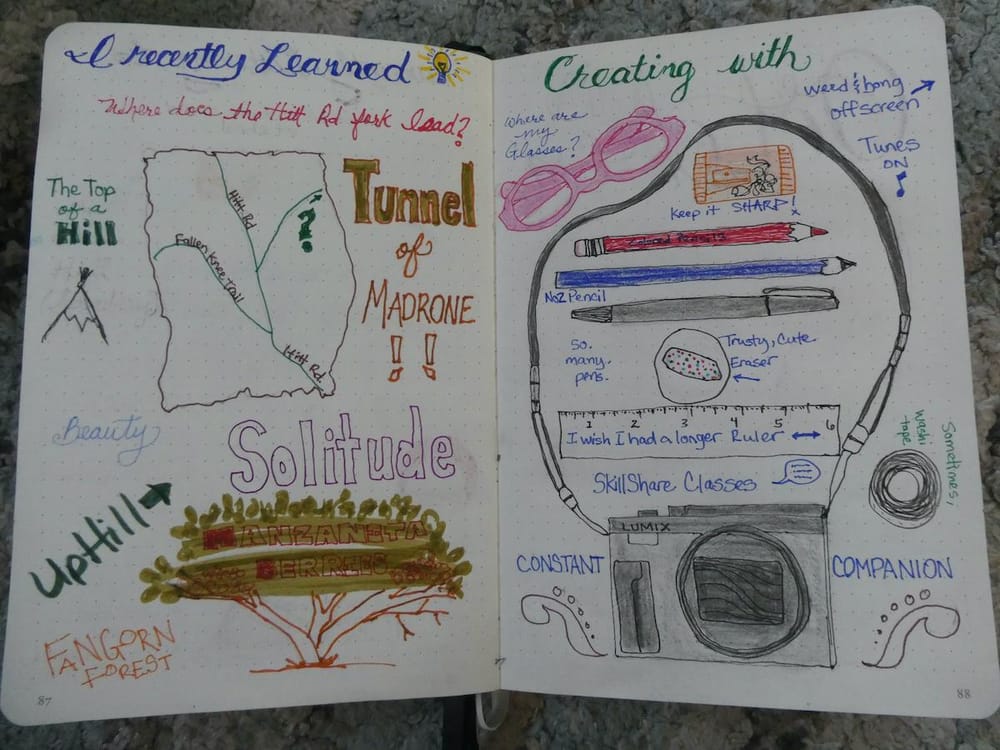 I recently Learned
Where does the Hitt Rd fork lead?
The Top
of a
Hill
Hitt Rd
?
Fallen Knee Trail
Hitt Rd.
Tunnel
of
MADRONE
!!
Beauty
Solitude
UpHill
MANZANITA
BERRIES
FANGORN
FOREST
87
Creating with
weed & bong
offscreen
Where are
my
Glasses?
Tunes
ON
Keep it SHARP!
Colored Pencils
No2 Pencil
So.
many.
pens.
Trusty, Cute
Eraser
1 2 3 4 5 6
I wish I had a longer Ruler
SkillShare Classes
Sometimes,
washi
tape
LUMIX
CONSTANT
COMPANION
88